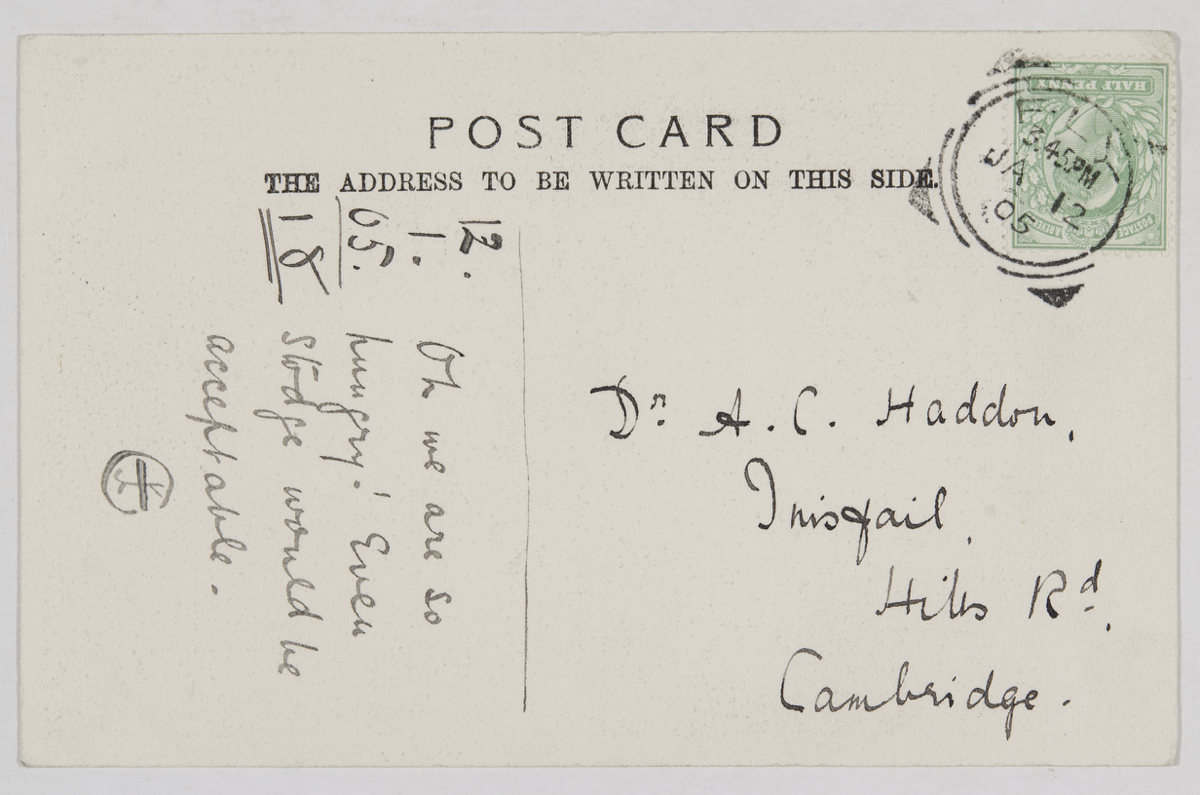 POST CARD
THE ADDRESS TO BE WRITTEN ON THIS SIDE.
HALF PENNY
ELY
3.45PM
JA 12
05
12.
1.
05.
18
Oh we are so
hungry! Even
stodge would be
acceptable.
Dr. A. C. Haddon,
Inisfail,
Hills Rd.,
Cambridge.